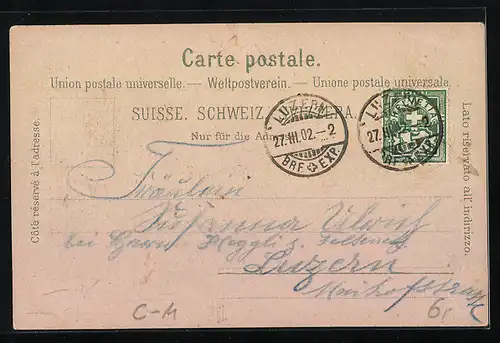 Carte postale.
Union postale universelle. — Weltpostverein. — Unione postale universale.
SUISSE. SCHWEIZ.
Nur für die
Côte réservé à l'adresse.
Lato riservato all' indirizzo.
LUZERN
27.III.02.–2
BRF EXP.
HELVETIA
27.III.02.–2
BRF EXP.
Fräulein
Susanna Ulrich
bei Herrn
Luzern
C-M
6,